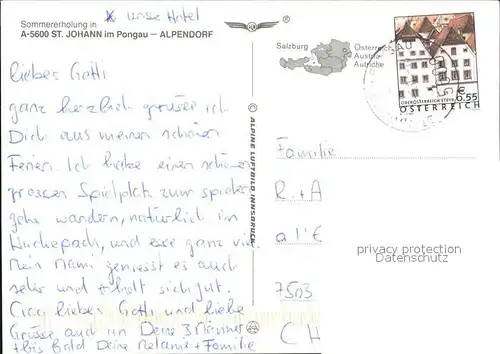 x unser Hotel
Sommererholung in
A-5600 ST. JOHANN im Pongau — ALPENDORF
liebes Gotti
ganz herzlich grüsse ich
Dich aus meinen schönen
Ferien. Ich habe einen schönen
grossen Spielplatz zum spielen
gehe wandern, natürlich im
und esse ganz viel.
Mein Mami geniesst es auch
sehr und erholt sich gut.
Ciao liebes Gotti und liebe
Grüsse auch an Deine 3 Männer
+ bis bald Deine Melanie + Familie
ALPINE LUFTBILD INNSBRUCK
Salzburg
Österreich
Austria
Autriche
OBERÖSTERREICH STEYR
€ 0.55
ÖSTERREICH
Familie
R. + A
a l'E
7503
CH
privacy protection
AKPool.de